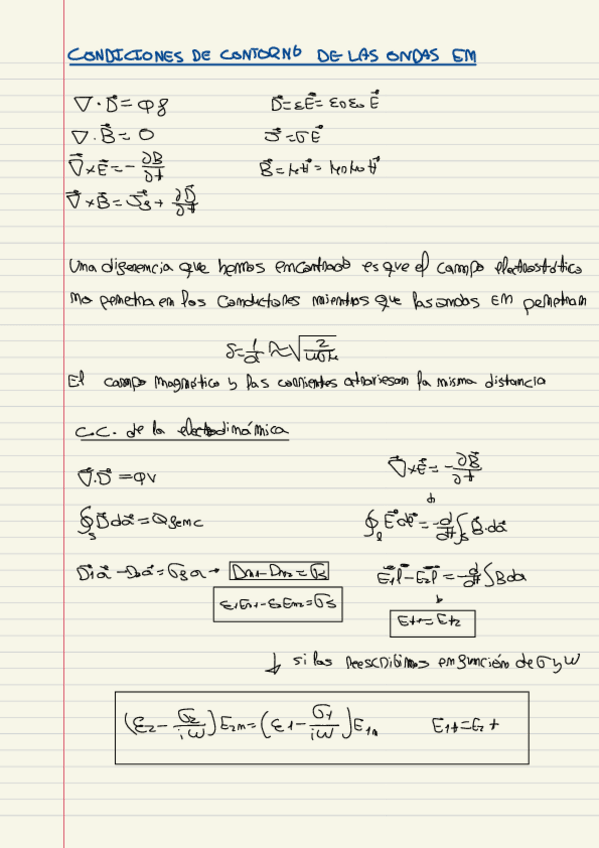 CONDICIONES DE CONTORNO DE LAS ONDAS EM
∇·D⃗ = φf D⃗ = εE⃗ = ε0ε0E⃗
∇·B⃗ = 0 J⃗ = σE⃗
∇⃗×E⃗ = -∂B/∂t B⃗ = μH⃗ = μ0μ0H⃗
∇⃗×B⃗ = J⃗f + ∂D⃗/∂t
Una diferencia que hemos encontrado es que el campo electrostático
no penetra en los conductores mientras que las ondas EM penetran
δ = 1/α ≈ √(2/ωσμ)
El campo magnético y las corrientes atraviesan la misma distancia
C.C. de la electrodinámica
∇⃗·D⃗ = φV ∇⃗×E⃗ = -∂B⃗/∂t
∮s D⃗da⃗ = Qfenc ∮l E⃗dl⃗ = -d/dt ∫s B⃗·da⃗
D⃗1a⃗ - D⃗2a⃗ = σfa → Dn1 - Dn2 = σs E⃗1l⃗ - E⃗2l⃗ = -d/dt ∫Bda
ε1En1 - ε2En2 = σs Et1 = Et2
↓ si las reescribimos en función de σ y ω
(ε2 - σ2/iω)E2n = (ε1 - σ1/iω)E1n E1t = E2t